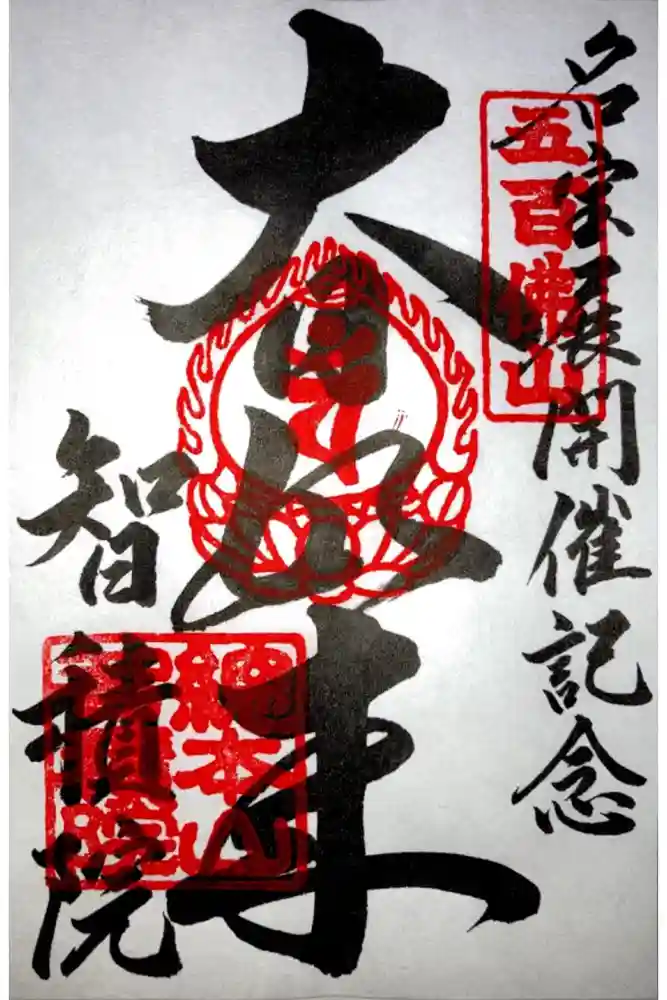 名宝展開催記念
五百佛山
大日如来
智積院
総本山
智積院